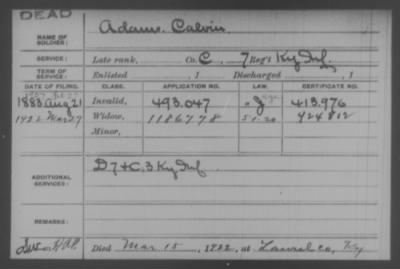 DEAD
NAME OF SOLDIER: Adams, Calvin
SERVICE: Late rank, Co. C, 7 Reg't Ky Inf.
TERM OF SERVICE: Enlisted , 1 Discharged , 1
DATE OF FILING. CLASS. APPLICATION NO. LAW. CERTIFICATE NO.
1883 Aug 21 Invalid, 493.047 413.976
1922 Mar 27 Widow, 1186778 5-1-20 924812
Minor,
ADDITIONAL SERVICES: D 7 & C, 3 Ky Inf
REMARKS:
Died Mar 15, 1922, at Laurel Co, Ky